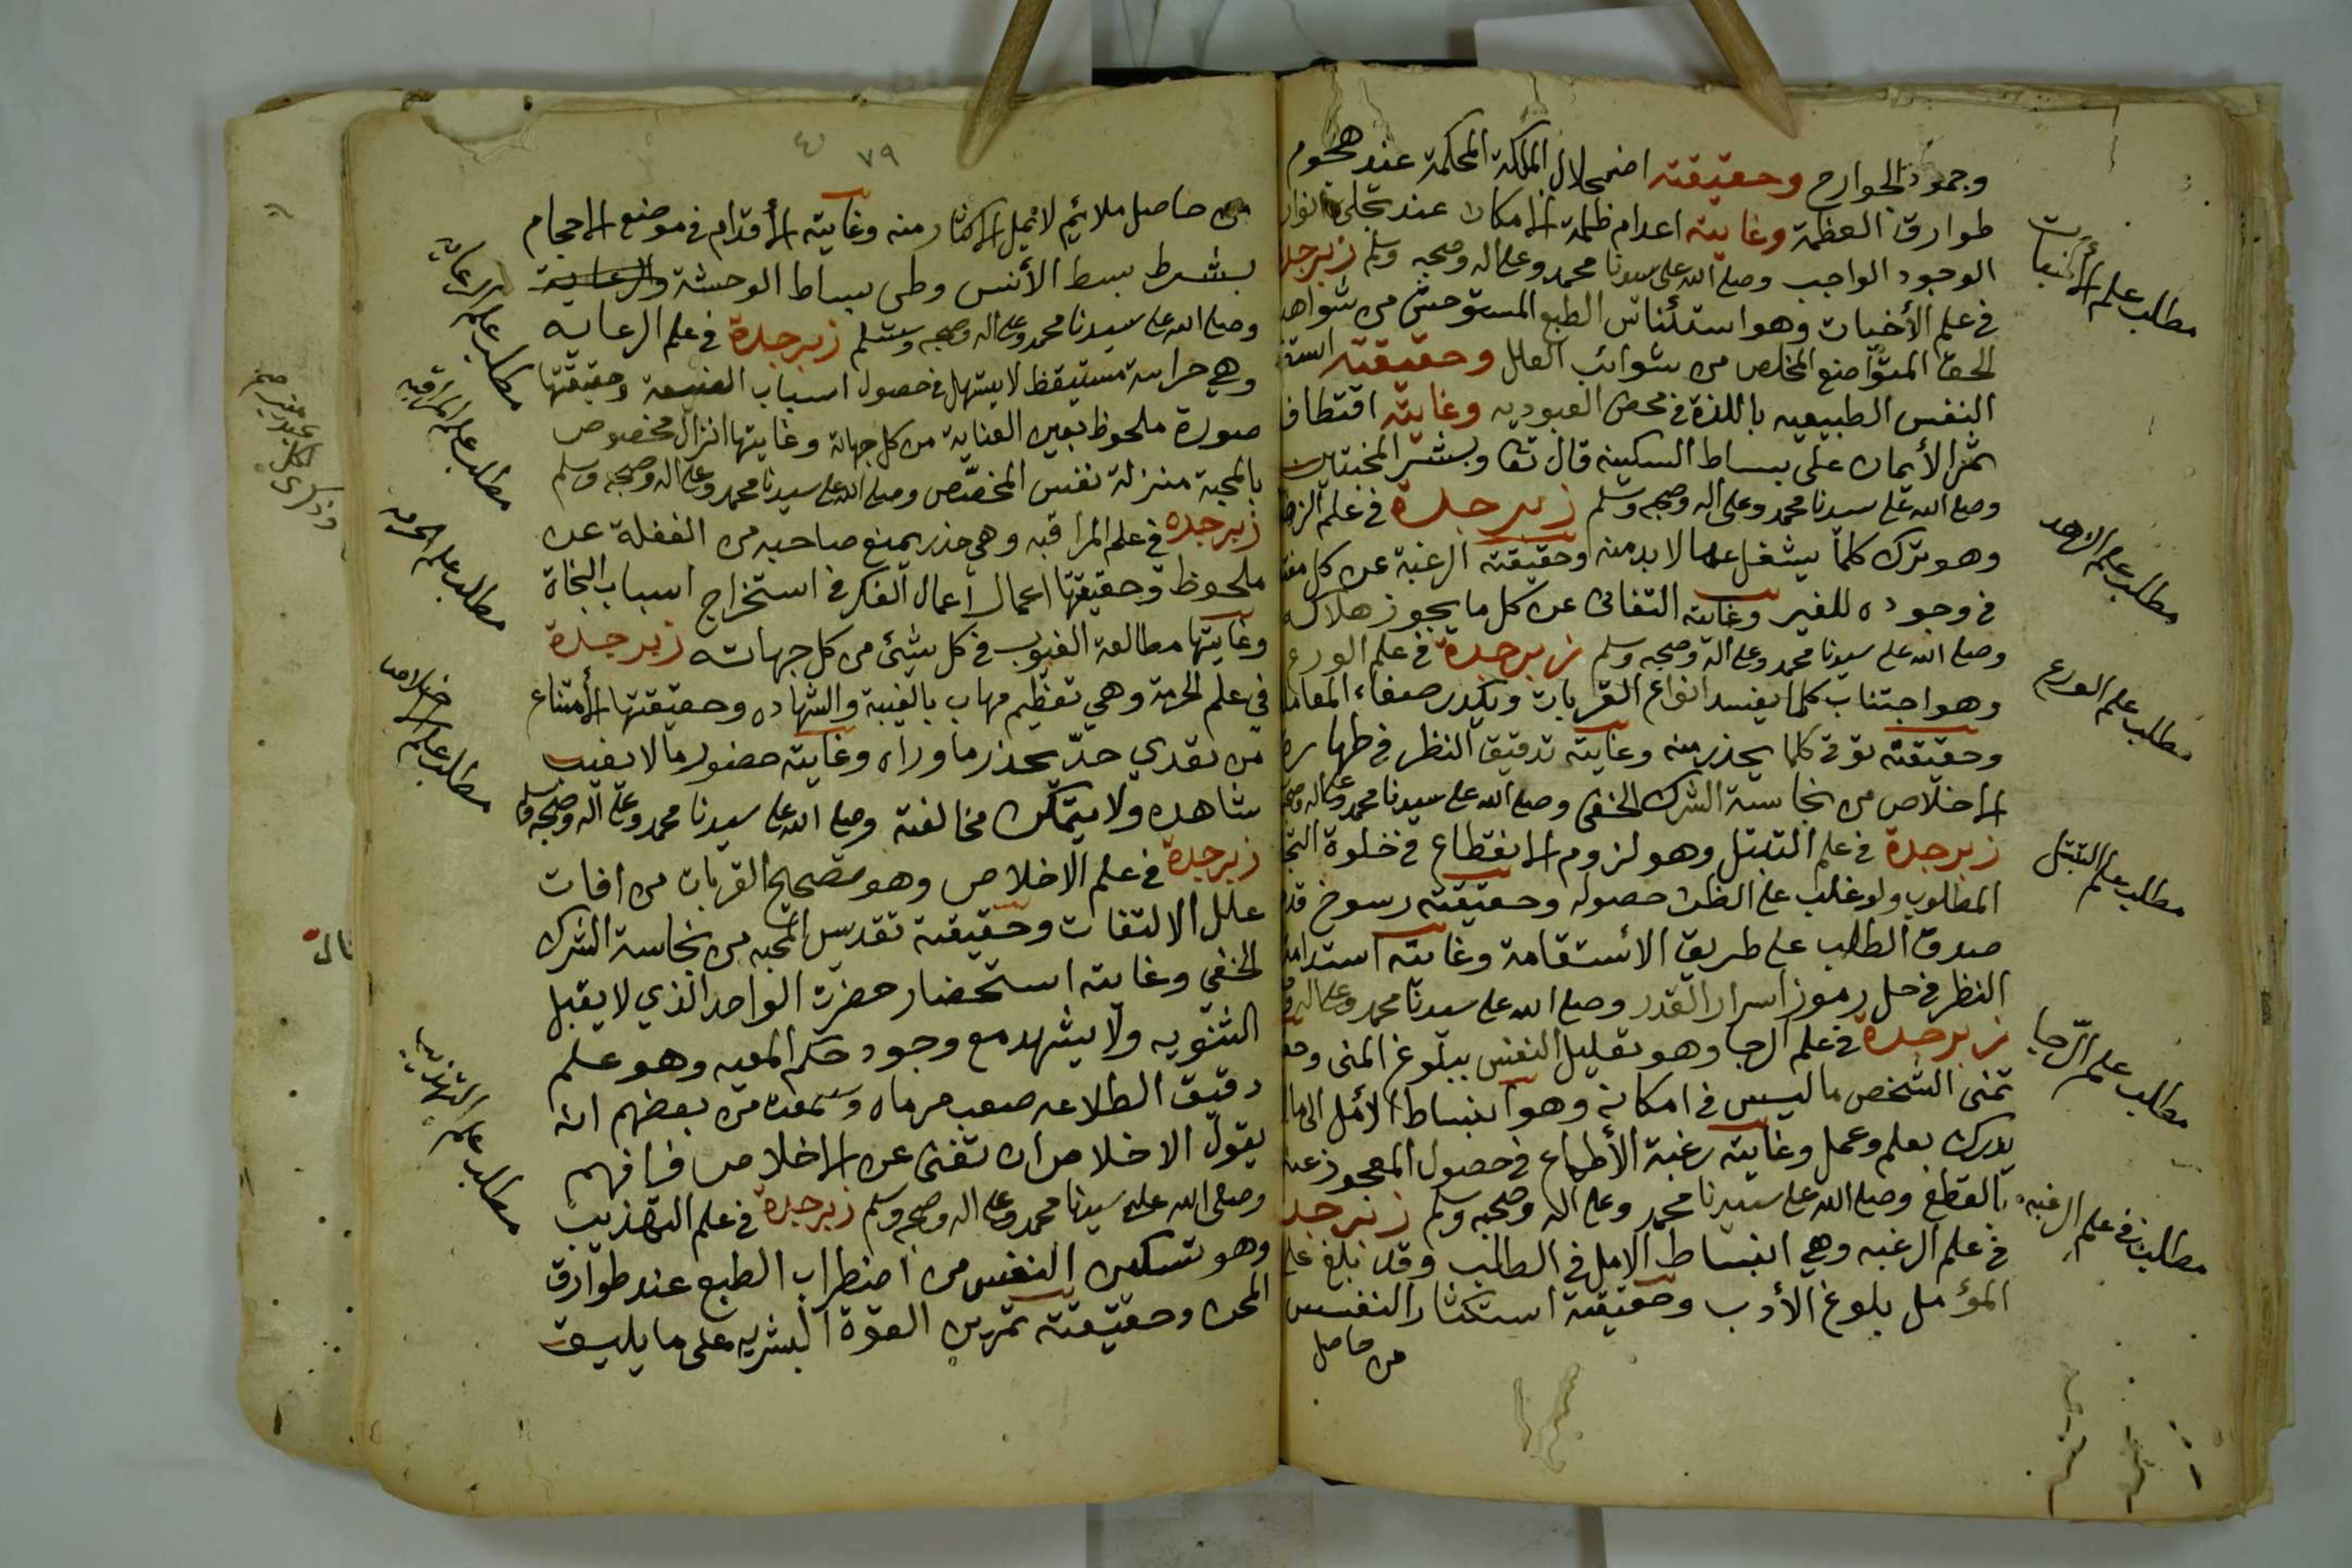 وجمود الجوارح وحقيقته اضمحلال الملكة المحكمة عند هجوم
طوارق العظمة وغايته اعدام ظلمة الامكان عند تجلي انوار
الوجود الواجب وصلى الله على سيدنا محمد وعلى اله وصحبه وسلم زبرجد
في علم الأخبات وهو استئناس الطبع المستوحش من شواهد
الحق المتواضع المخلص من شوائب العلل وحقيقته
النفس الطبيعيه باللذة في محض العبوديه وغايته اقتطاف
ثمر الأيمان على بساط السكينه قال تعا وبشر المخبتين
وصلى الله على سيدنا محمد وعلى اله وصحبه وسلم زبرجدة في علم الزهد
وهو ترك كلما يشغل عما لا بد منه وحقيقته الرغبة عن كل
في وجوده للغير وغايته التفانى عن كل ما يجوز هلاكه
وصلى الله على سيدنا محمد وعلى اله وصحبه وسلم زبرجدة في علم الورع
وهو اجتناب كلما يفسد انواع القربات ويكدر صفاء المعاملـ
وحقيقته توقى كلما يحذر منه وغايته تدقيق النظر في طهارة
الاخلاص من نجاسة الشرك الخفى وصلى الله على سيدنا محمد وعلى اله وصحبه
زبرجدة في علم التبتل وهو لزوم الانقطاع في خلوة
المطلوب ولو غلب على الظن حصوله وحقيقته رسوخ قدم
صدق الطالب على طريق الأستقامة وغايته استدامة
النظر في حل رموز اسرار القدر وصلى الله على سيدنا محمد وعلى اله
زبرجدة في علم الرجا وهو تعليل النفس ببلوغ المنى
تمنى الشخص ما ليس في امكانه وهو انبساط الأمل الى ما
يدرك بعلم وعمل وغايته رغبة الأطماع في حصول المعجوز عنه
بالقطع وصلى الله على سيدنا محمد وعلى اله وصحبه وسلم زبرجد
في علم الرغبه وهي انبساط الامل في الطالب وقد بلغ على
المؤمل بلوغ الأدب وحقيقته استكثار النفس
من حاصل
مطلب علم الأخبات
مطلب علم الزهد
مطلب علم الورع
مطلب علم التبتل
مطلب علم الرّجا
مطلب في علم الرغبه
٧٩
من حاصل ملايم لا تمل الاكثار منه وغايته الأقدام في موضع الاحجام
بشرط بسط الأنس وطى بساط الوحشة والرعاية
وصلى الله على سيدنا محمد وعلى اله وصحبه وسلم زبرجدة في علم الرعايه
وهي حراسة مستيقظ لا يستهل في حصول اسباب وحقيقتها
صورة ملحوظ بعين العناية من كل جهاته وغايتها انزال مخصوص
بالمحبة منزلة نفس المخصّص وصلى الله على سيدنا محمد وعلى اله وصحبه وسلم
زبرجده في علم المراقبه وهي حذر يمنع صاحبه من الغفلة عن
ملحوظ وحقيقتها اعمال اعمال الفكر في استخراج اسباب النجاة
وغايتها مطالعة الغيوب في كل شيئ من كل جهاته زبرجدة
في علم الحرمة وهي تعظيم مهاب بالغيبة والشهاده وحقيقتها الأمتناع
من تعدي حدّ يحذر ما وراه وغايته حضور ما لا يغيب
شاهده ولا يتمكن مخالفته وصلى الله على سيدنا محمد وعلى اله وصحبه وسلم
زبرجدة في علم الاخلاص وهو تصحيح القربات من افات
علل الالتفات وحقيقة تقديس المحبه من نجاسة الشرك
الخفي وغايته استحضار حضرت الواحد الذي لا يقبل
الثنويه ولا يشهد مع وجود حكم المعيه وهو علم
دقيق الطلاعه صعب مرماه وسمعت من بعضهم انه
يقول الاخلاص ان تفنى عن الاخلاص فافهم
وصلى الله على سيدنا محمد وعلى اله وصحبه وسلم زبرجدة في علم التهذيب
وهو تسكين النفس من اضطراب الطبع عند طوارق
المحن وحقيقته تمرين القوة البشريه على ما يليق
مطلب علم الرعايه
مطلب علم المراقبه
مطلب علم الحرمه
مطلب علم الاخلاص
مطلب علم التهذيب